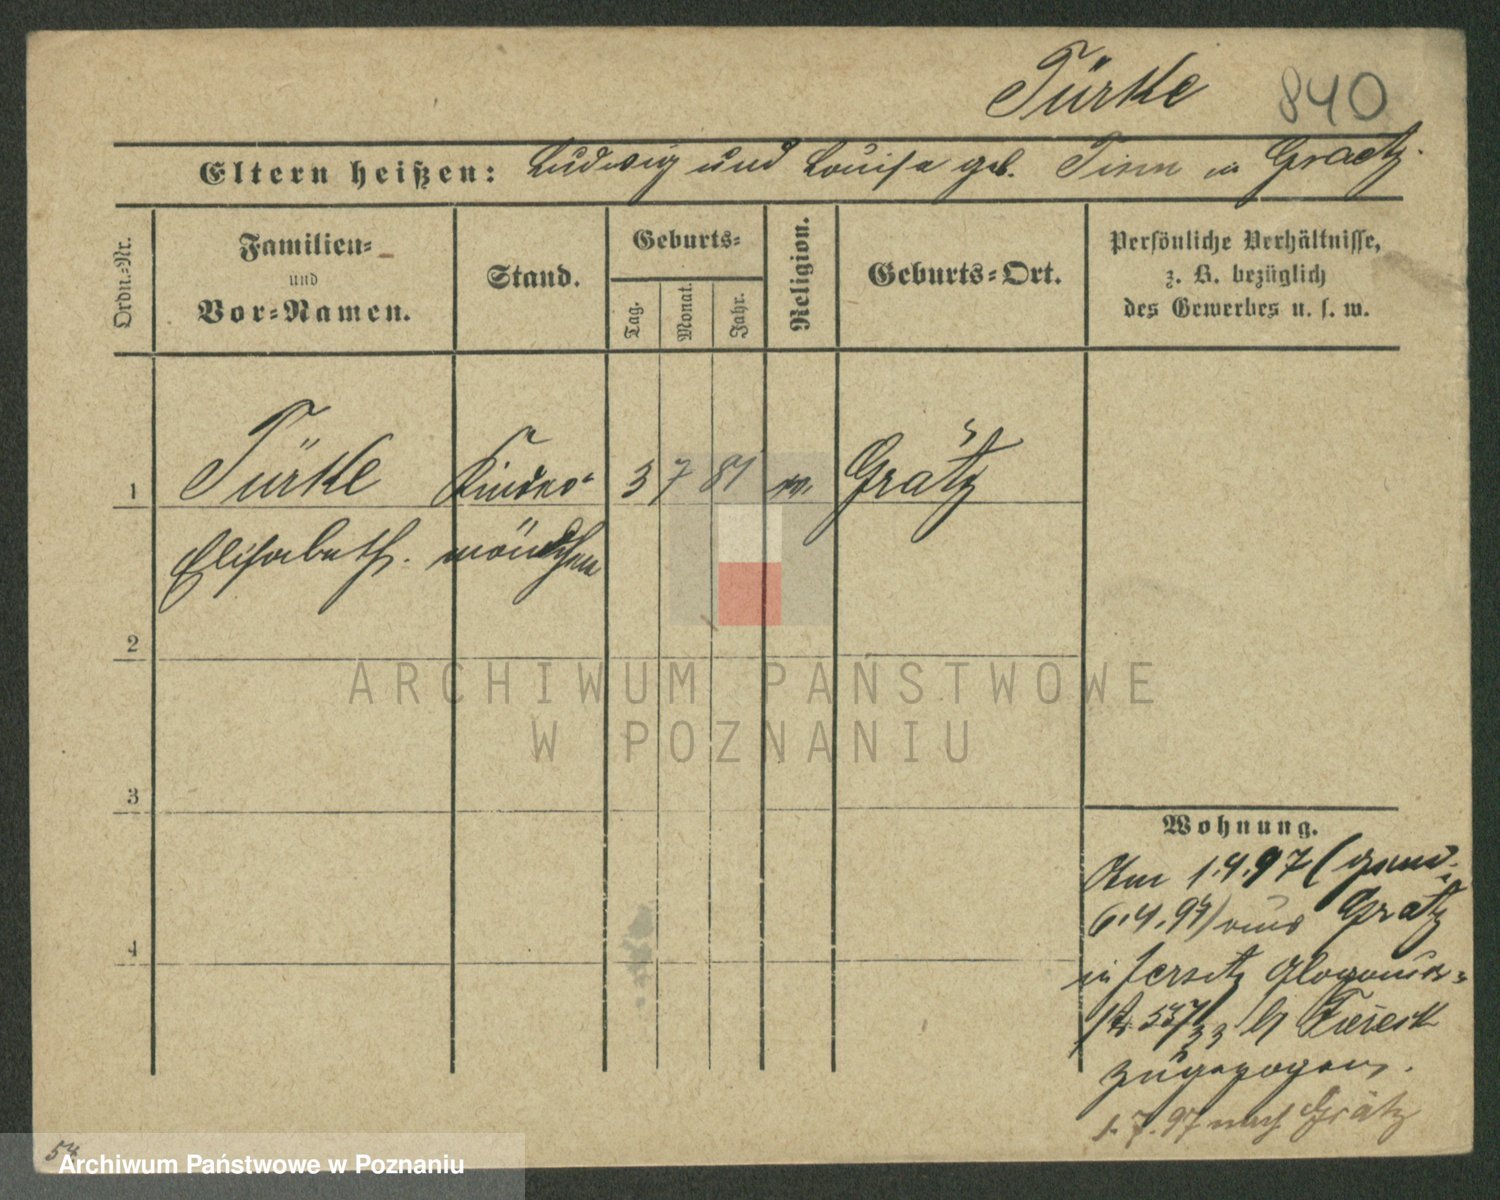 Türke 840
Eltern heißen: Ludwig und Louise geb. in Graetz.
Ordn.=Nr.
Familien=
und
Vor=Namen.
Stand.
Geburts=
Tag.
Monat.
Jahr.
Religion.
Geburts=Ort.
Persönliche Verhältnisse,
z. B. bezüglich
des Gewerbes u. s. w.
1 Türke Kinder= 3 7 81 Grätz
Elisabeth. mädchen
2
ARCHIWUM PAŃSTWOWE
W POZNANIU
3
4
Wohnung.
Am 1.4.97 (gem.
6.4.97) aus Grätz
in Jersitz Glogauer=
str 53 b
zugezogen.
1.7.97 nach Grätz
Archiwum Państwowe w Poznaniu